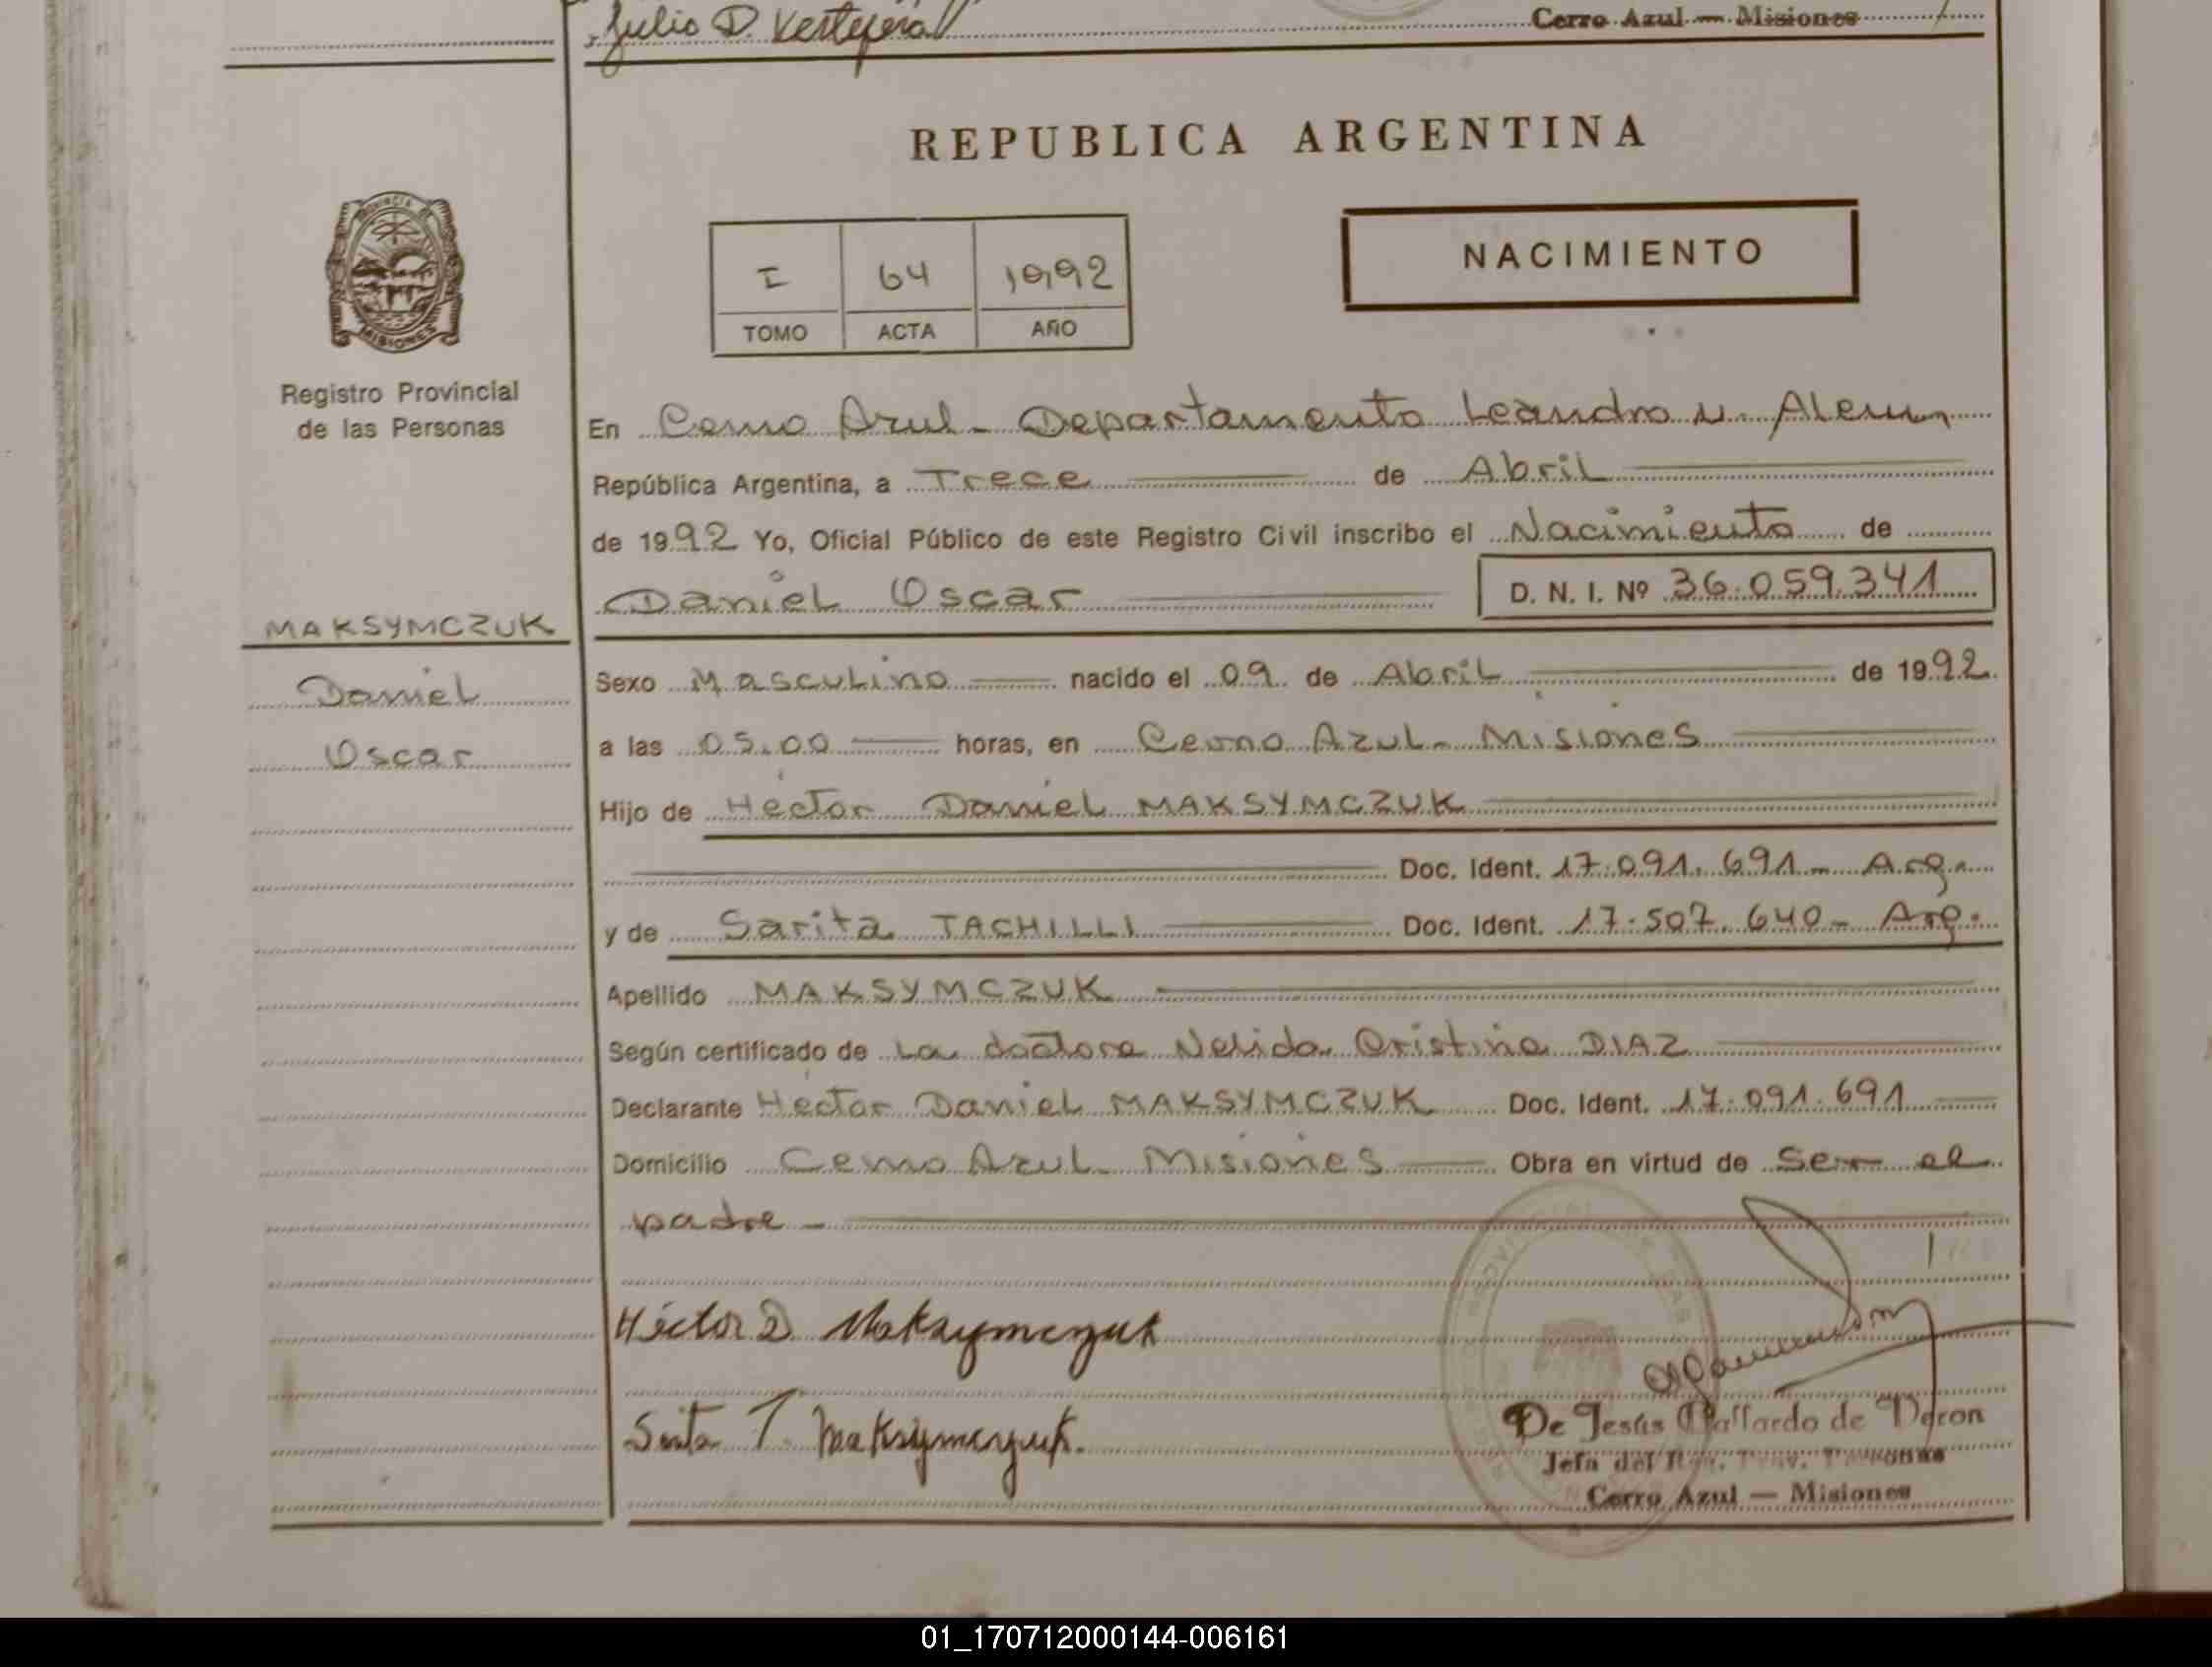 Julio D. Vertepera
Cerro Azul — Misiones
REPUBLICA ARGENTINA
PROVINCIA DE
MISIONES
I 64 1992
TOMO ACTA AÑO
NACIMIENTO
Registro Provincial
de las Personas
En Cerro Azul - Departamento Leandro N. Alem
República Argentina, a Trece de Abril
de 1992 Yo, Oficial Público de este Registro Civil inscribo el Nacimiento de
Daniel Oscar D. N. I. Nº 36.059.341
MAKSYMCZUK
Daniel
Oscar
Sexo Masculino nacido el 09 de Abril de 1992.
a las 05.00 horas, en Cerro Azul - Misiones
Hijo de Hector Daniel MAKSYMCZUK
Doc. Ident. 17.091.691 - Arg.
y de Sarita TACHILLI Doc. Ident. 17.507.640 - Arg.
Apellido MAKSYMCZUK
Según certificado de La doctora Nelida Cristina DIAZ
Declarante Hector Daniel MAKSYMCZUK Doc. Ident. 17.091.691
Domicilio Cerro Azul - Misiones Obra en virtud de Ser el
padre -
Héctor D Maksymczuk
Sarita T. Maksymczuk.
De Jesús Gallardo de Duron
Jefa del Reg. Prov. Personas
Cerro Azul — Misiones
01_170712000144-006161